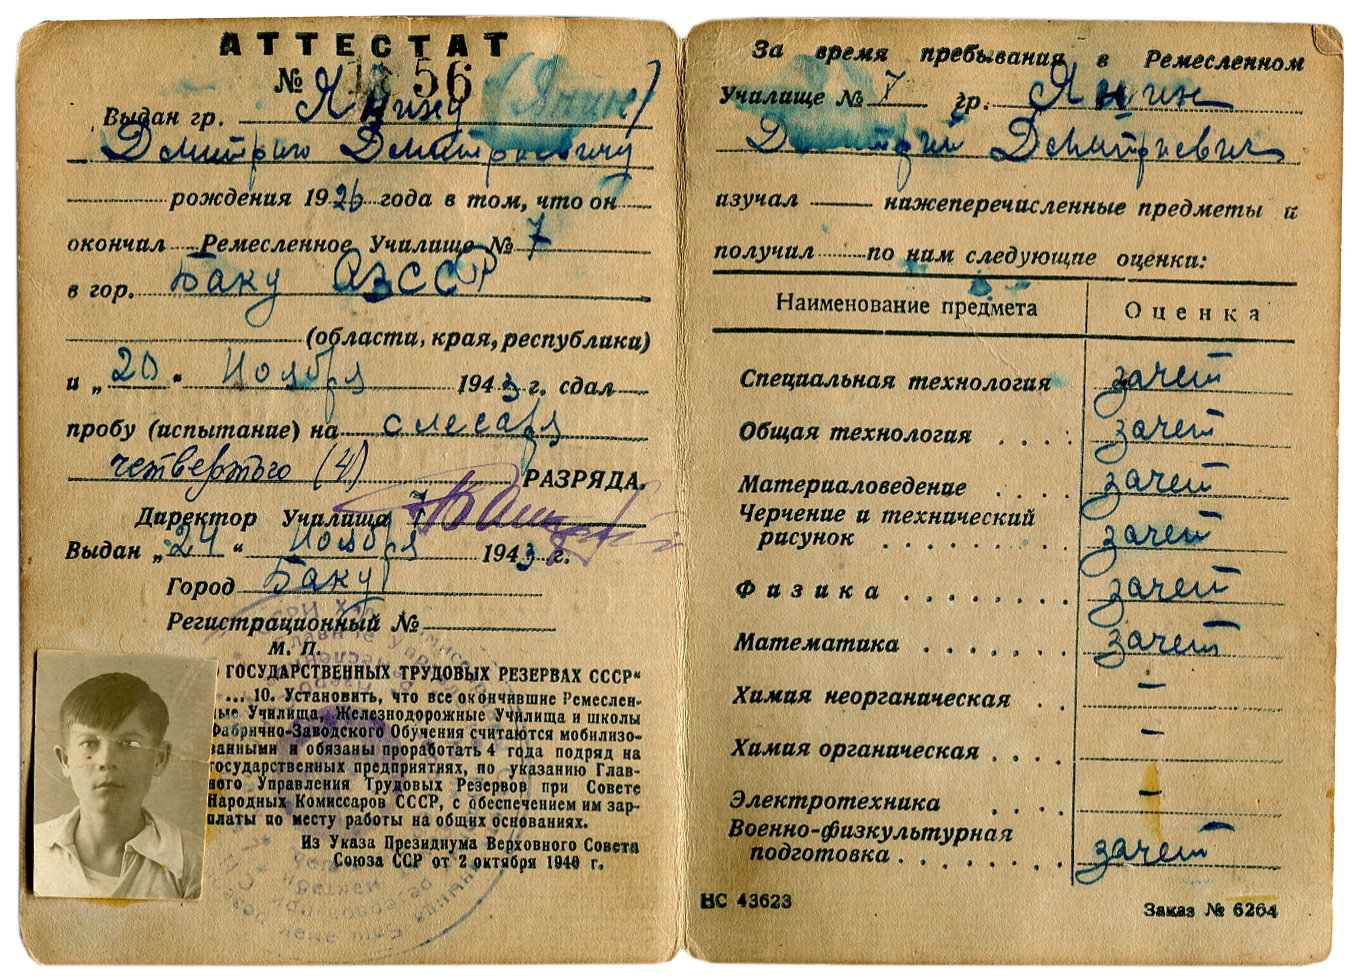 АТТЕСТАТ
№ 1856
Выдан гр. Янину (Янин)
Дмитрию Дмитриевичу
рождения 1926 года в том, что он
окончил Ремесленное Училище № 7
в гор. Баку АЗССР
(области, края, республики)
и „20“ Ноября 1943 г. сдал
пробу (испытание) на слесаря
четвертого (4) РАЗРЯДА.
Директор Училища 7
Выдан „24“ Ноября 1943 г.
Город Баку
Регистрационный №
М. П.
ГОСУДАРСТВЕННЫХ ТРУДОВЫХ РЕЗЕРВАХ СССР“
... 10. Установить, что все окончившие Ремеслен-
ные Училища, Железнодорожные Училища и школы
Фабрично-Заводского Обучения считаются мобилизо-
ванными и обязаны проработать 4 года подряд на
государственных предприятиях, по указанию Глав-
ного Управления Трудовых Резервов при Совете
Народных Комиссаров СССР, с обеспечением им зар-
платы по месту работы на общих основаниях.
Из Указа Президиума Верховного Совета
Союза ССР от 2 октября 1940 г.
За время пребывания в Ремесленном
Училище № 7 гр. Янин
Дмитрий Дмитриевич
изучал нижеперечисленные предметы и
получил по ним следующие оценки:
Наименование предмета Оценка
Специальная технология зачет
Общая технология . . . . зачет
Материаловедение . . . . зачет
Черчение и технический
рисунок . . . . . . . . зачет
Физика . . . . . . . зачет
Математика . . . . . . зачет
Химия неорганическая . . —
Химия органическая . . . . —
Электротехника . . . . —
Военно-физкультурная
подготовка . . . . . . . зачет
НС 43623
Заказ № 6264